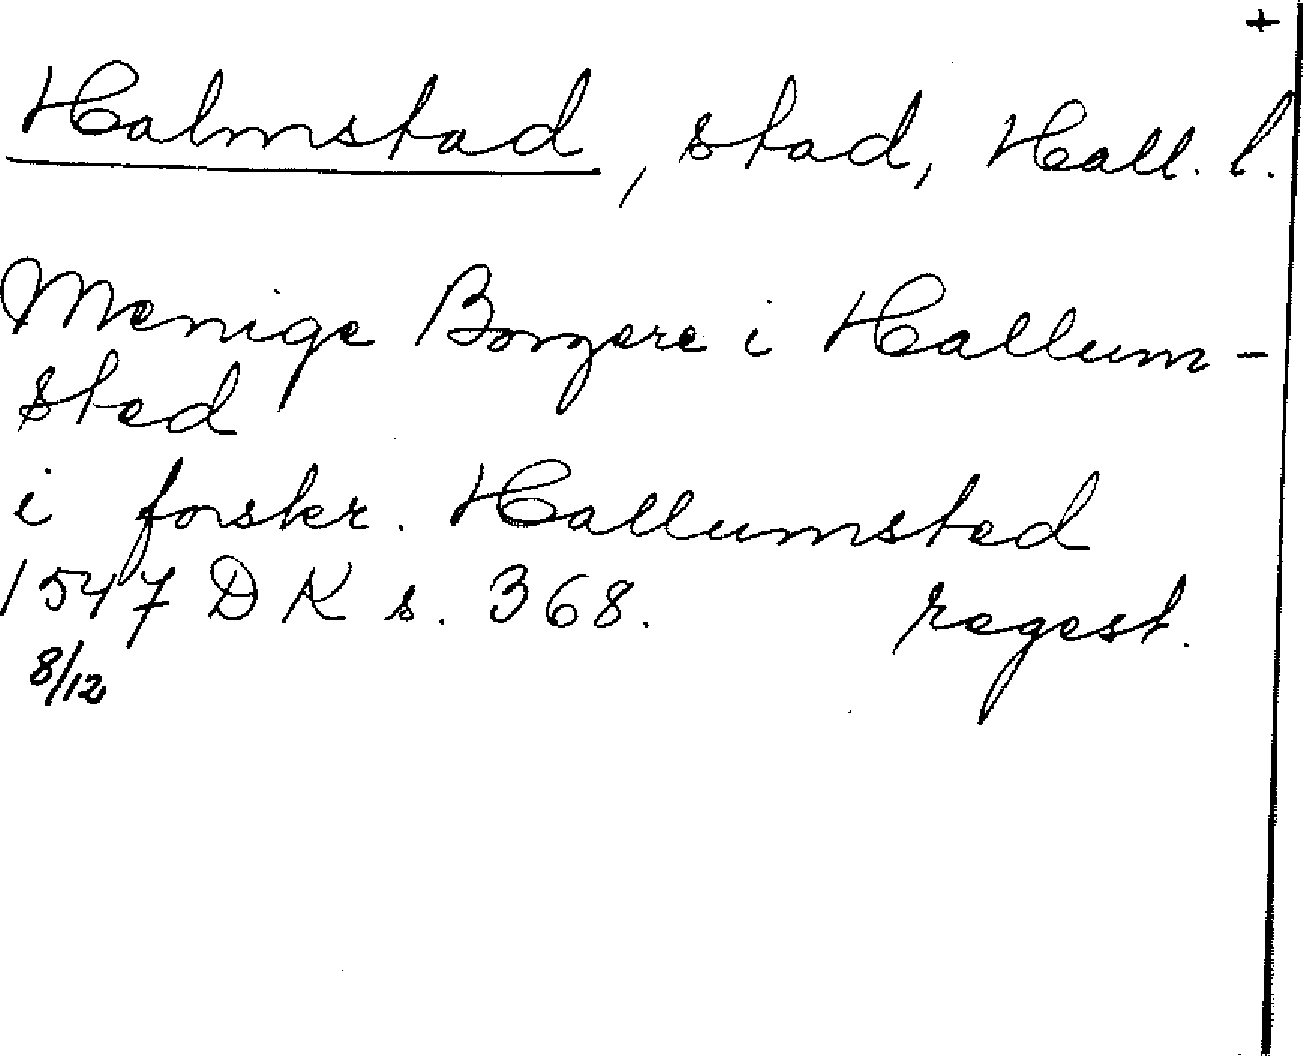 +
Halmstad, stad, Hall. l.
Menige Borgere i Hallum-
sted
i forskr. Hallumsted
1547 DK s. 368. regest.
8/12